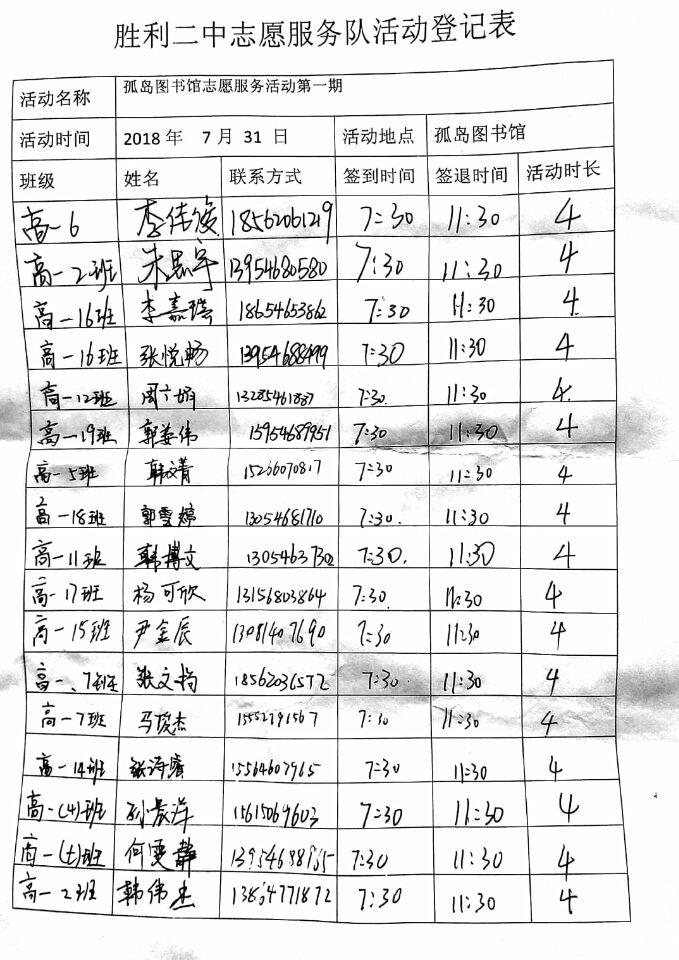 胜利二中志愿服务队活动登记表
活动名称 孤岛图书馆志愿服务活动第一期
活动时间 2018 年 7 月 31 日 活动地点 孤岛图书馆
班级 姓名 联系方式 签到时间 签退时间 活动时长
高一6 李伟俊 18562061219 7:30 11:30 4
高一2班 朱思宇 13954680580 7:30 11:30 4
高一16班 李嘉瑞 18654653862 7:30 11:30 4
高一16班 张悦畅 13954688499 7:30 11:30 4
高一12班 周 7:30 11:30 4
高一19班 郭姜伟 15954689951 7:30 11:30 4
高一5班 韩文菁 7:30 11:30 4
高一18班 郭雪婷 13054681710 7:30 11:30 4
高一11班 韩博文 13054637302 7:30 11:30 4
高一17班 杨可欣 13156803864 7:30 11:30 4
高一15班 尹金辰 13081407690 7:30 11:30 4
高一、7班 张文 18562036572 7:30 11:30 4
高一7班 马俊杰 15552791567 7:30 11:30 4
高一14班 张海 15564607965 7:30 11:30 4
高一(4)班 孙晨洋 15615069603 7:30 11:30 4
高一(七)班 何雯静 7:30 11:30 4
高一2班 韩伟杰 7:30 11:30 4